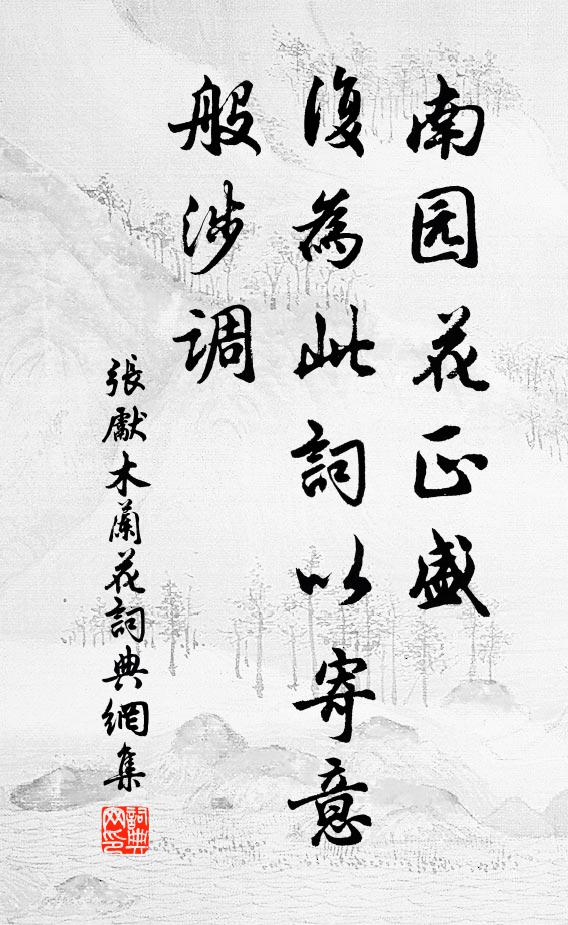 南园花正盛
復為此詞以寄意
般涉调
張獻木蘭花詞典網集
詞典
网印